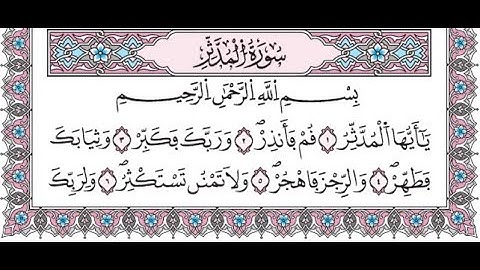 سُورَةُ الْمُدَّثِّرِ
بِسْمِ اللَّهِ الرَّحْمَٰنِ الرَّحِيمِ
يَا أَيُّهَا الْمُدَّثِّرُ ١ قُمْ فَأَنذِرْ ٢ وَرَبَّكَ فَكَبِّرْ ٣ وَثِيَابَكَ
فَطَهِّرْ ٤ وَالرِّجْزَ فَاهْجُرْ ٥ وَلَا تَمْنُن تَسْتَكْثِرُ ٦ وَلِرَبِّكَ